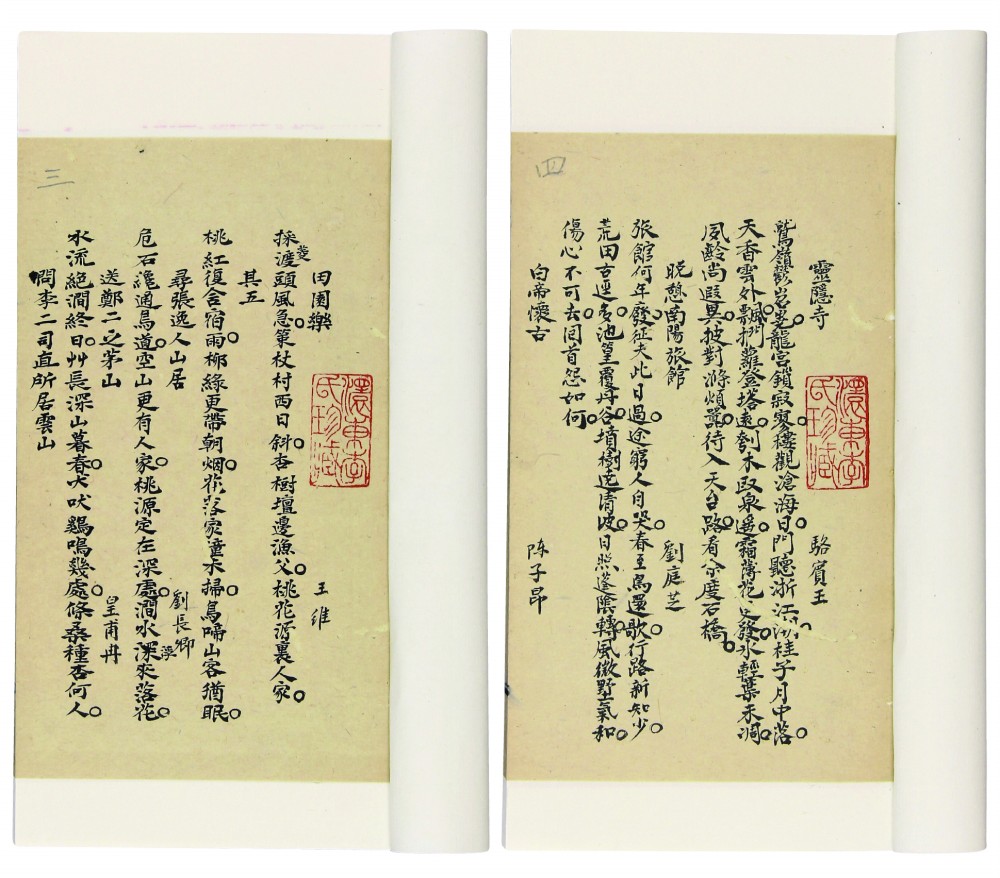 三
田園樂 王維
採菱渡頭風急。策杖村西日斜。杏樹壇邊漁父。桃花源裏人家。
其五
桃紅復含宿雨。柳綠更帶朝烟。花落家童未掃。鳥啼山客猶眠。
尋張逸人山居 劉長卿
危石纔通鳥道。空山更有人家。桃源定在深處。澗水浮來落花。
送鄭二之茅山 皇甫冉
水流絕澗終日。艸長深山暮春。犬吠鷄鳴幾處。條桑種杏何人。
問李二司直所居雲山
東李
氏珍藏
四
靈隱寺 駱賓王
鷲嶺鬱岧嶤。龍宮鎖寂寥。樓觀滄海日。門聽浙江潮。桂子月中落。
天香雲外飄。捫蘿登塔遠。刳木取泉遙。霜薄花更發。冰輕葉未凋。
夙齡尚遐異。披對滌煩囂。待入天台路。看余度石橋。
晚憩南陽旅館 劉庭芝
館何年廢。征夫此日過。途窮人自哭。春至鳥還歌。行路新知少。
荒田古逕多。池篁覆丹谷。墳樹遶清波。日照蓬陰轉。風微野氣和。
傷心不可去。回首怨如何。
白帝懷古 陳子昂
東李
氏珍藏